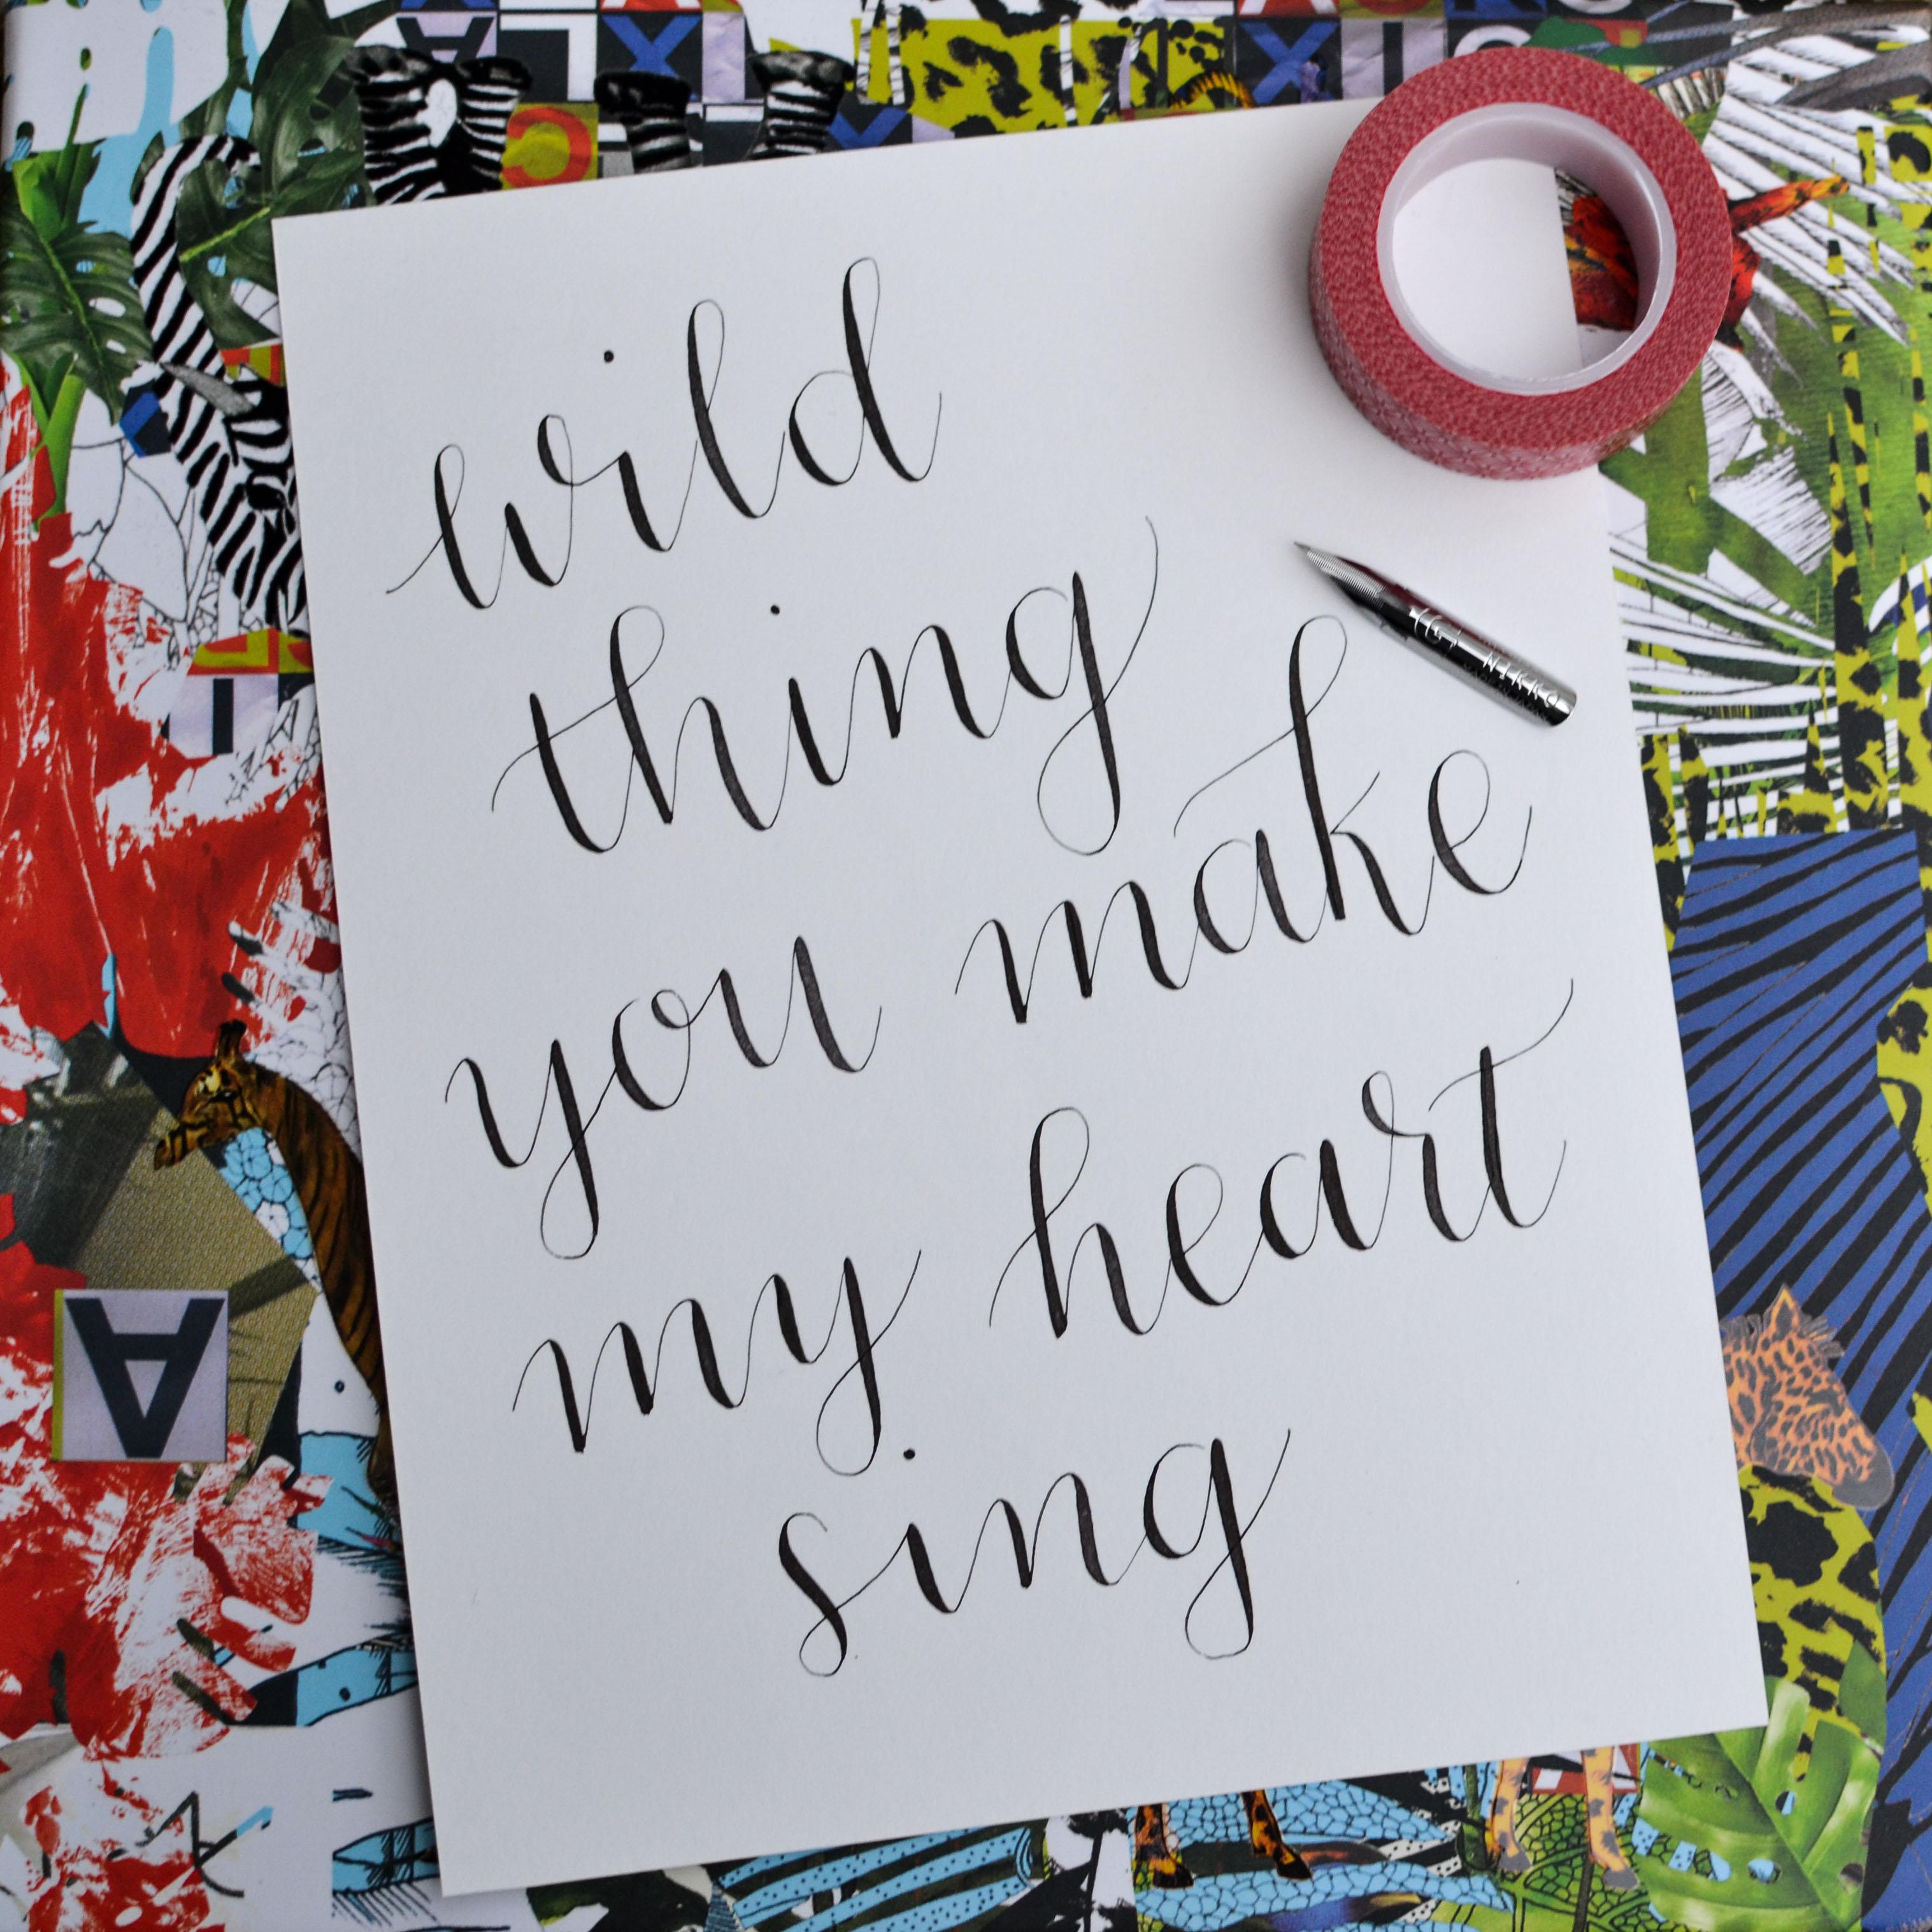 wild
thing
you make
my heart
sing
NIKKO
A